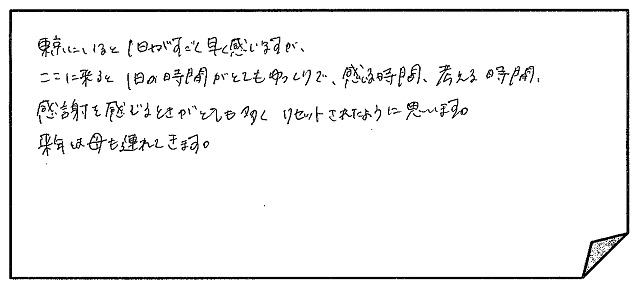 東京にいると1日がすごく早く感じますが、
ここに来ると1日の時間がとてもゆっくりで、感じる時間、考える時間、
感謝を感じるときがとても多く リセットされたように思います。
来年は母も連れてきます。